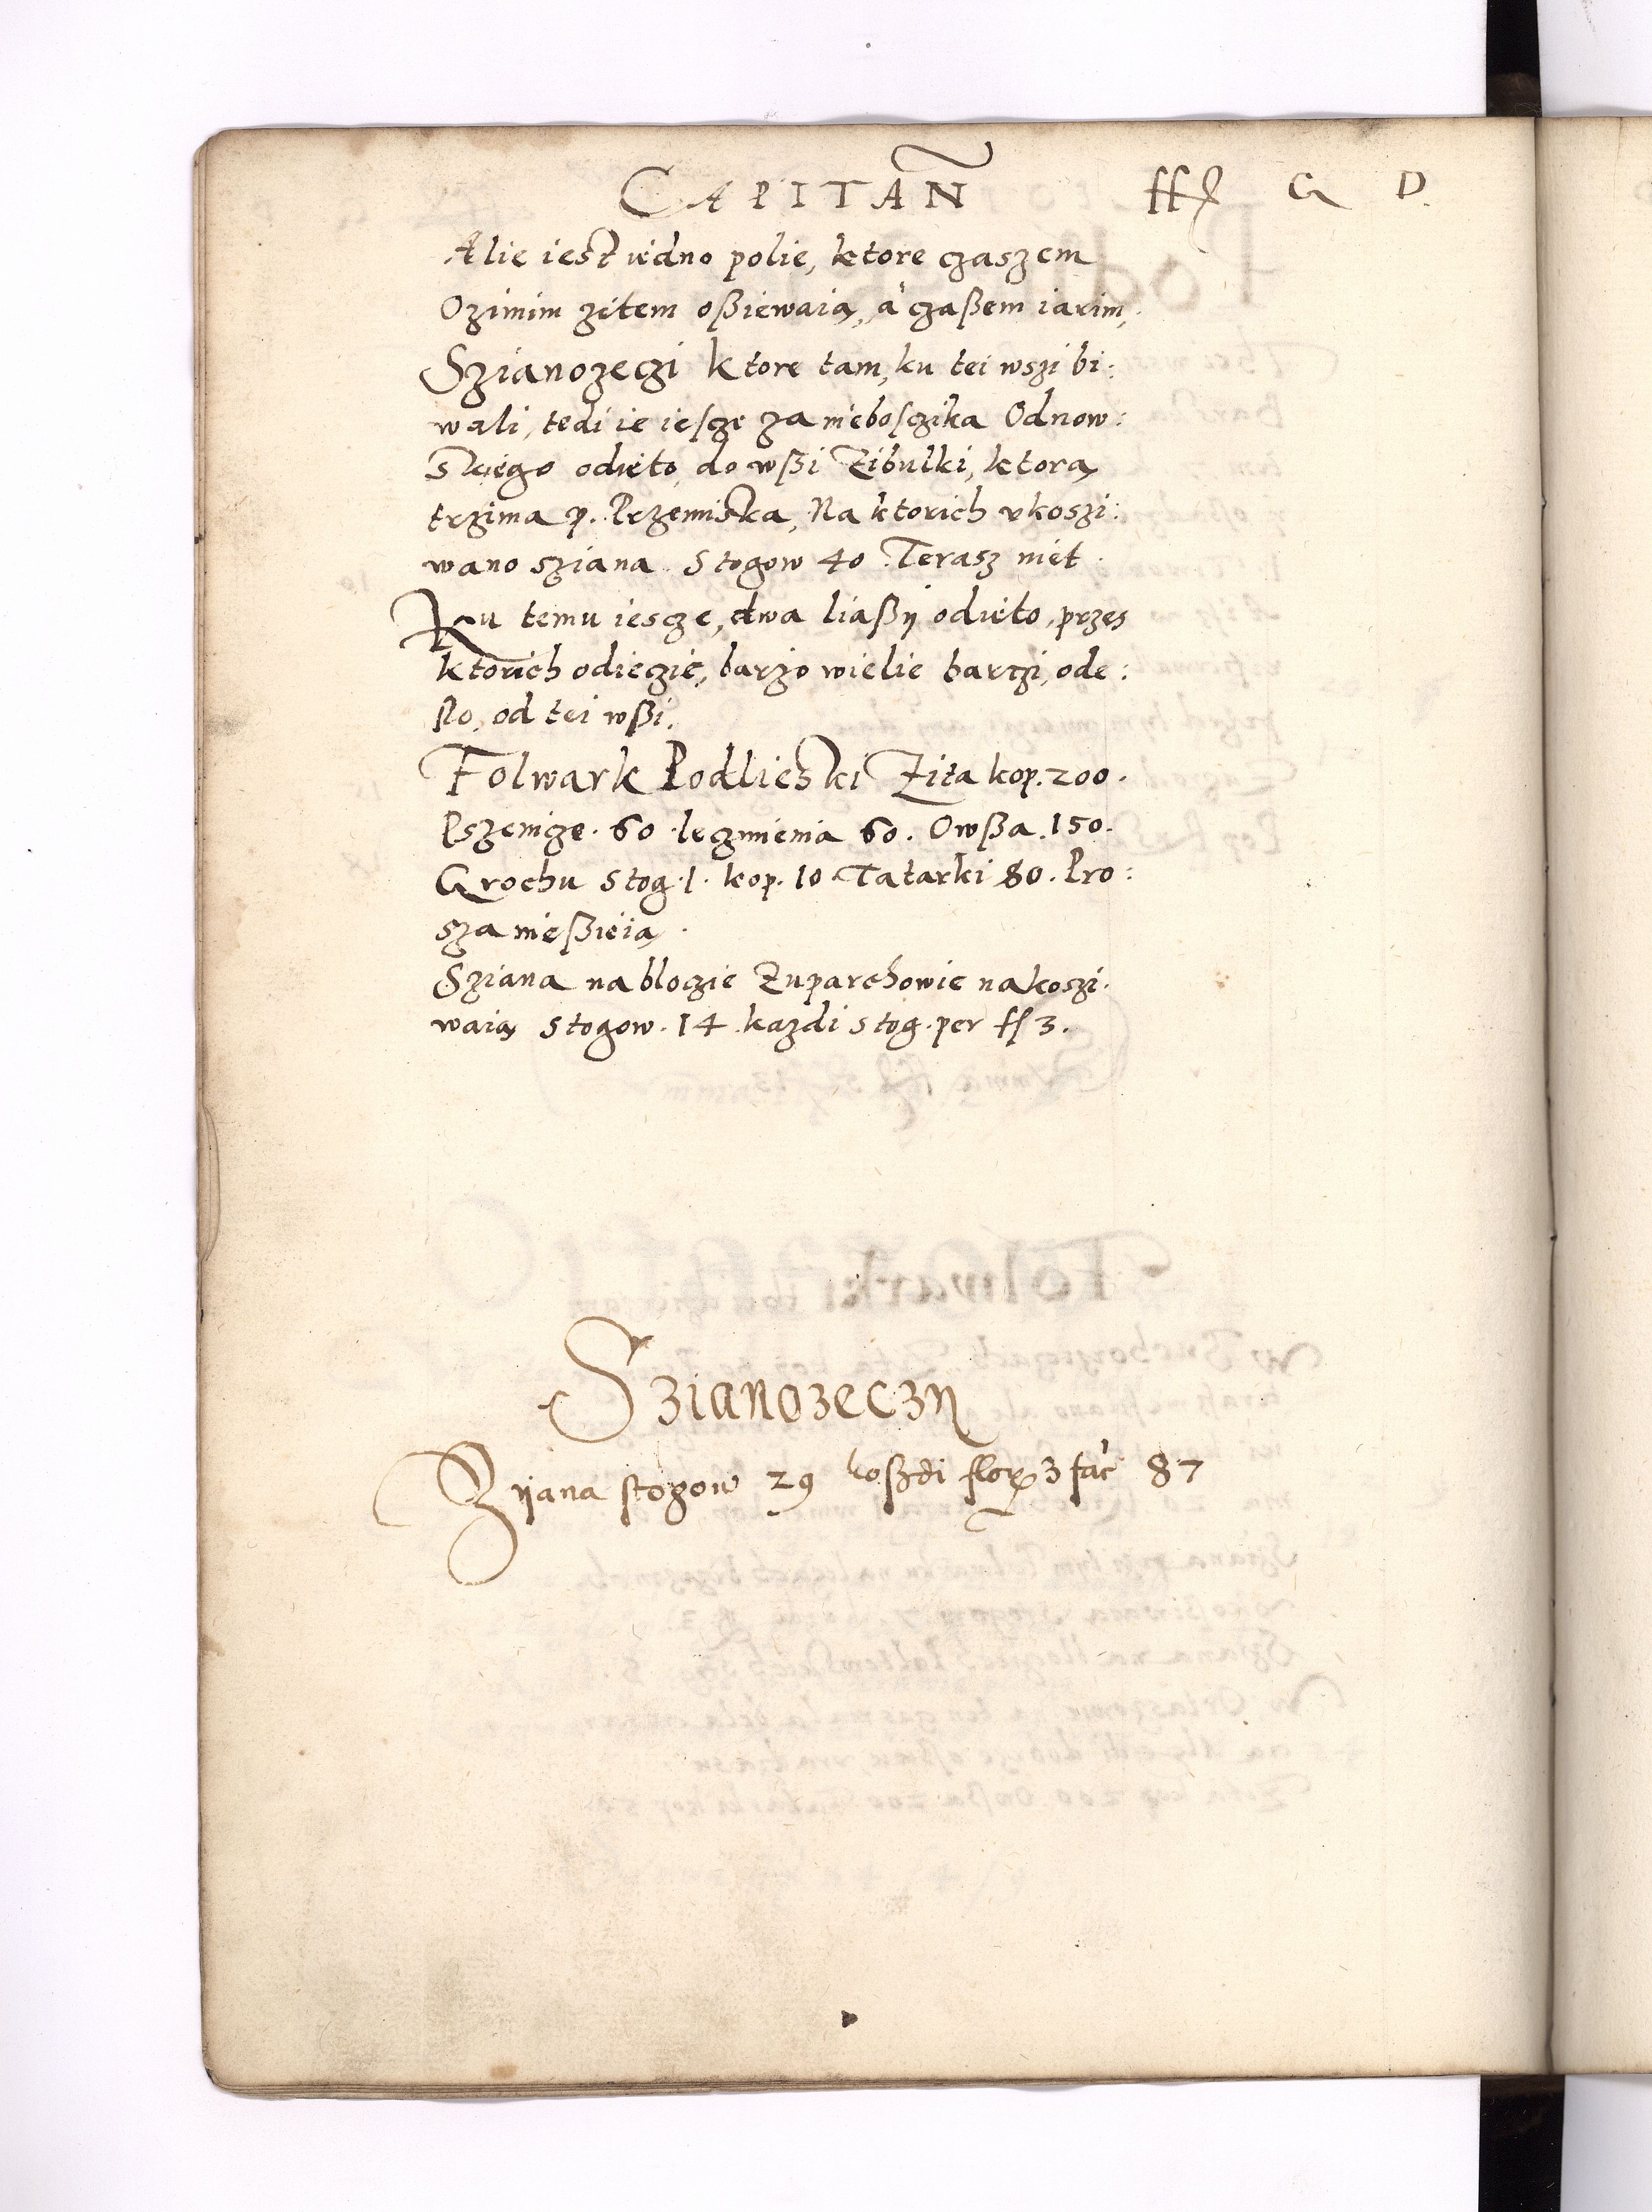 CAPITAÑ ff G D.
Alie iest iedno polie, ktore czaszem
Ozimim zitem oßiewaią, a czaßem iarim,
Szianozeczi ktore tam, ku tei wszi bi:
wali, tedi ie iescze za nieboszczika Odnow:
skiego odieto, do wßi Zibulki, ktorą
trzima p. Przemiska, Na ktorich vkoszi:
wano sziana Stogow 40 Terasz niet
Ku temu iescze, dwa liaßÿ odieto, przes
ktorich odieczie, barzo wielie barczi, ode:
ßlo, od tei wßi.
Folwark Podlieski Zita kop. 200.
Pszenicze. 60. Ieczmienia 60. Owßa. 150.
Grochu Stog. 1. kop. 10 Tatarki 80. Pro:
sza nießieią.
Sziana na bloczie Zuparchowie nakoszi.
waią stogow. 14 kazdi stog. per ff 3.
Szianozeczy
Zyana stogow 29 koszdi flor 3 fac 87